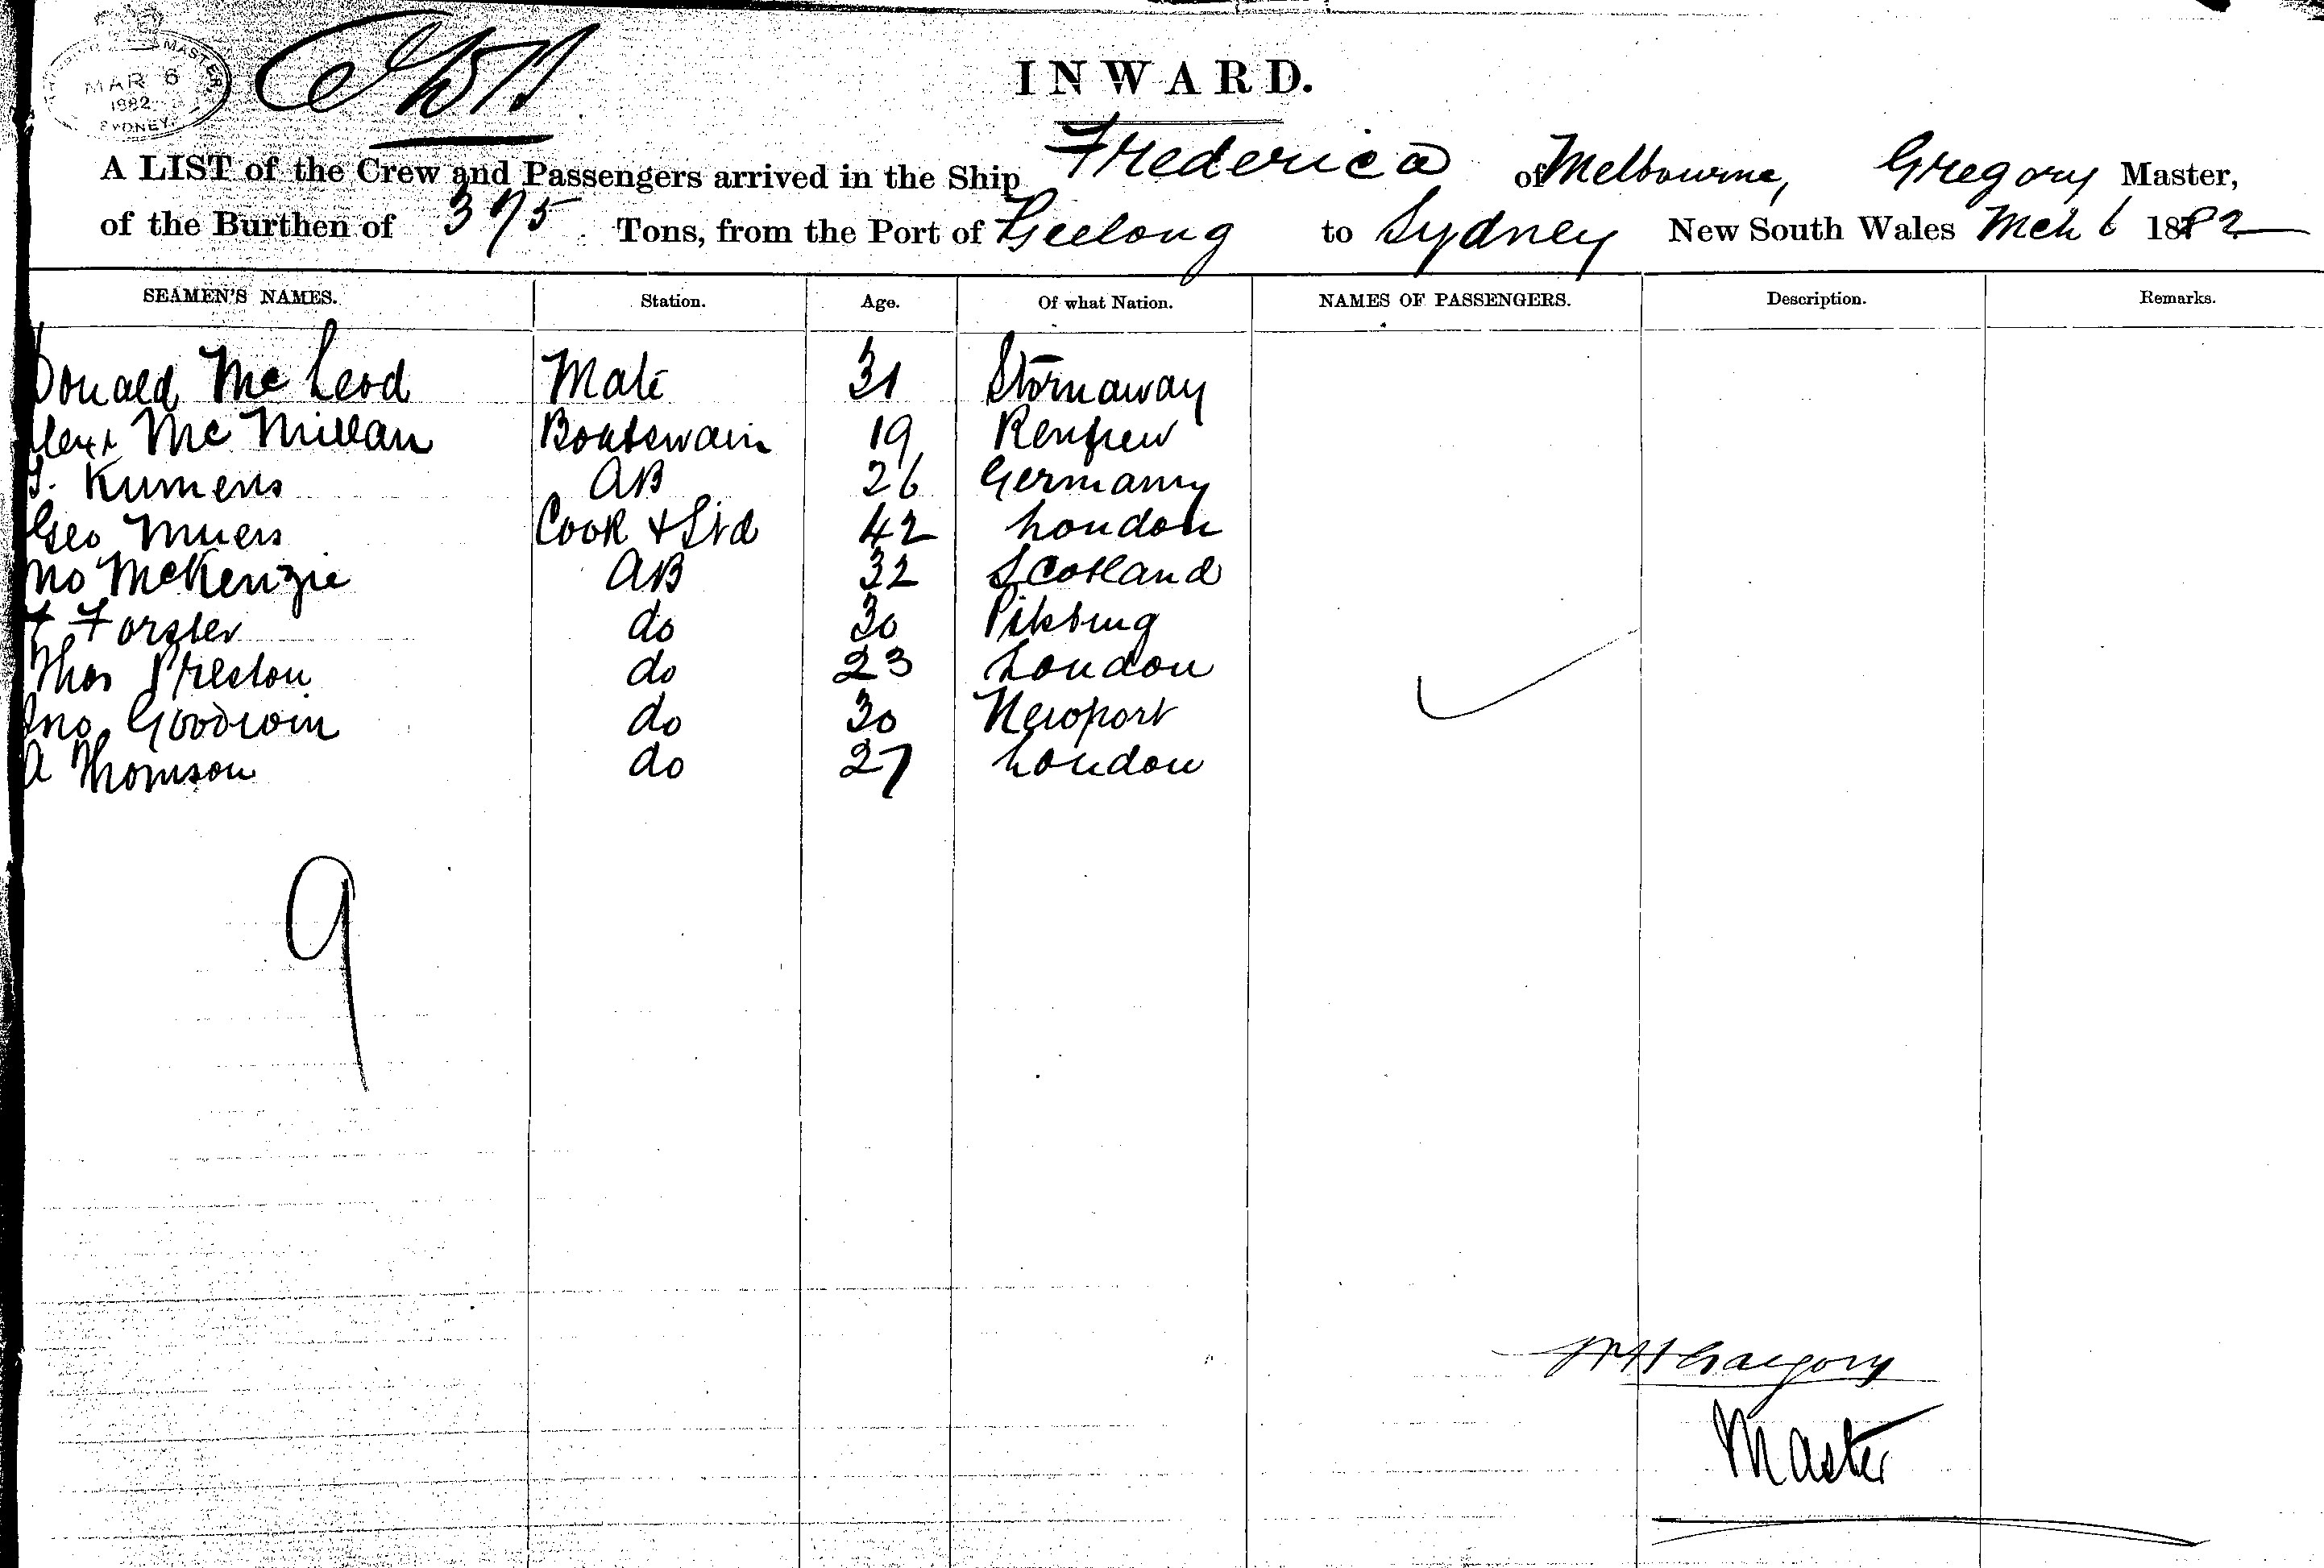 MASTER
MAR 6
1882
SYDNEY.
INWARD.
A LIST of the Crew and Passengers arrived in the Ship Frederica of Melbourne, Gregory Master,
of the Burthen of 375 Tons, from the Port of Geelong to Sydney New South Wales Mch 6 1882
SEAMEN'S NAMES. Station. Age. Of what Nation. NAMES OF PASSENGERS. Description. Remarks.
Donald McLeod Mate 31 Stornaway
Alexr McMillan Boatswain 19 Renfrew
Kumens AB 26 Germany
Geo Myers Cook & Std 42 London
Jno McKenzie AB 32 Scotland
F Forster do 30 Pitsburg
Thos Preston do 23 London
Jno Goodwin do 30 Newport
A Thomson do 27 London
9
WH Gregory
Master